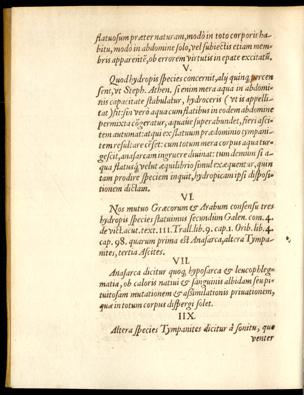 flatuosum præter naturam, modò in toto corporis ha-
bitu, modo in abdomine solo, vel subiectis etiam mem-
bris apparentẽ, ob errorem virtutis in epate excitatũ.
V.
Quod hydropis species concernit, alij quinq; recen
sent, vt Steph. Athen. si enim mera aqua in abdomi-
nis capacitate stabulatur, hydroceris (vt is appelli-
tat) sit: sin verò aqua cum flatibus in eodem abdomine
permixta cõgeratur, aquæue superabundet, fieri asci-
tem autumat: atqui ex flatuum prædominio tympani-
tem resultare cẽset: cum totum mera corpus aqua tur-
gescit, anasarcam ingruere diuinat: tum demùm si a-
qua flatusq́; velut æquilibrio simul exæquentur, quin
tam prodire speciem inquit, hydropicam ipsi disposi-
tionem dictam.
VI.
Nos mutuo Græcorum & Arabum consensu tres
hydropis species statuimus secundùm Galen. com. 4.
de vict. acut. text. 111. Trall. lib. 9. cap. 1. Orib. lib. 4.
cap. 98. quarum prima est Anasarca, altera Tympa-
nites, tertia Ascites.
VII.
Anasarca dicitur quoq; hyposarca & leucophleg-
matia, ob caloris natiui & sanguinis albidam seu pi-
tuitosam mutationem & assimilationis priuationem,
qua in totum corpus dispergi solet.
IIX.
Altera species Tympanites dicitur à sonitu, quo
venter